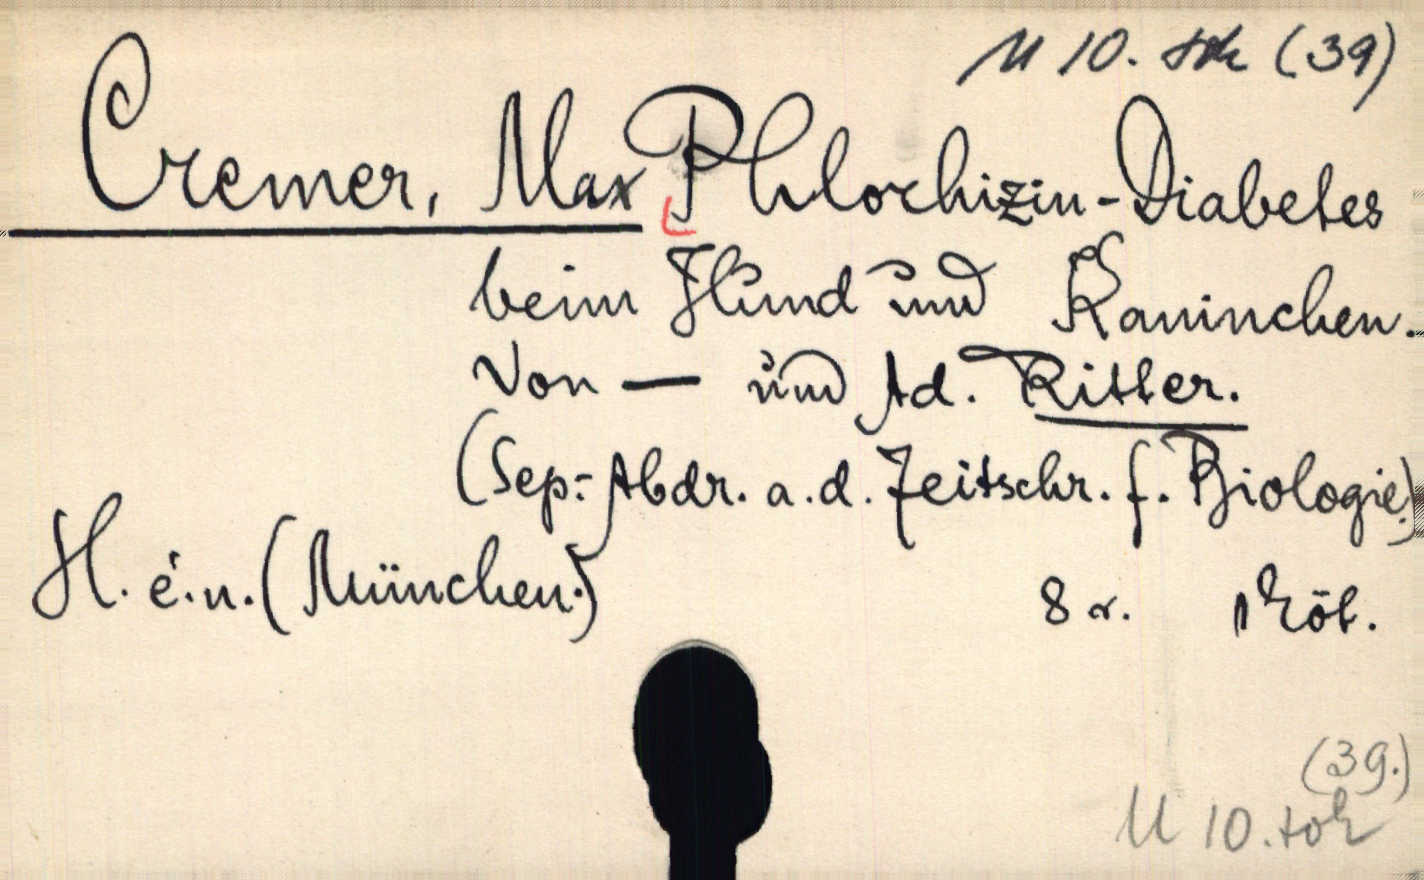 M 10. tok (39)
Cremer, Max Phlorhizin-Diabetes
beim Hund und Kaninchen.
Von — und Ad. Ritter.
(Sep.-Abdr. a. d. Zeitschr. f. Biologie.)
H. é. n. (München.)
8 r. Köt.
(39.)
M 10. tok